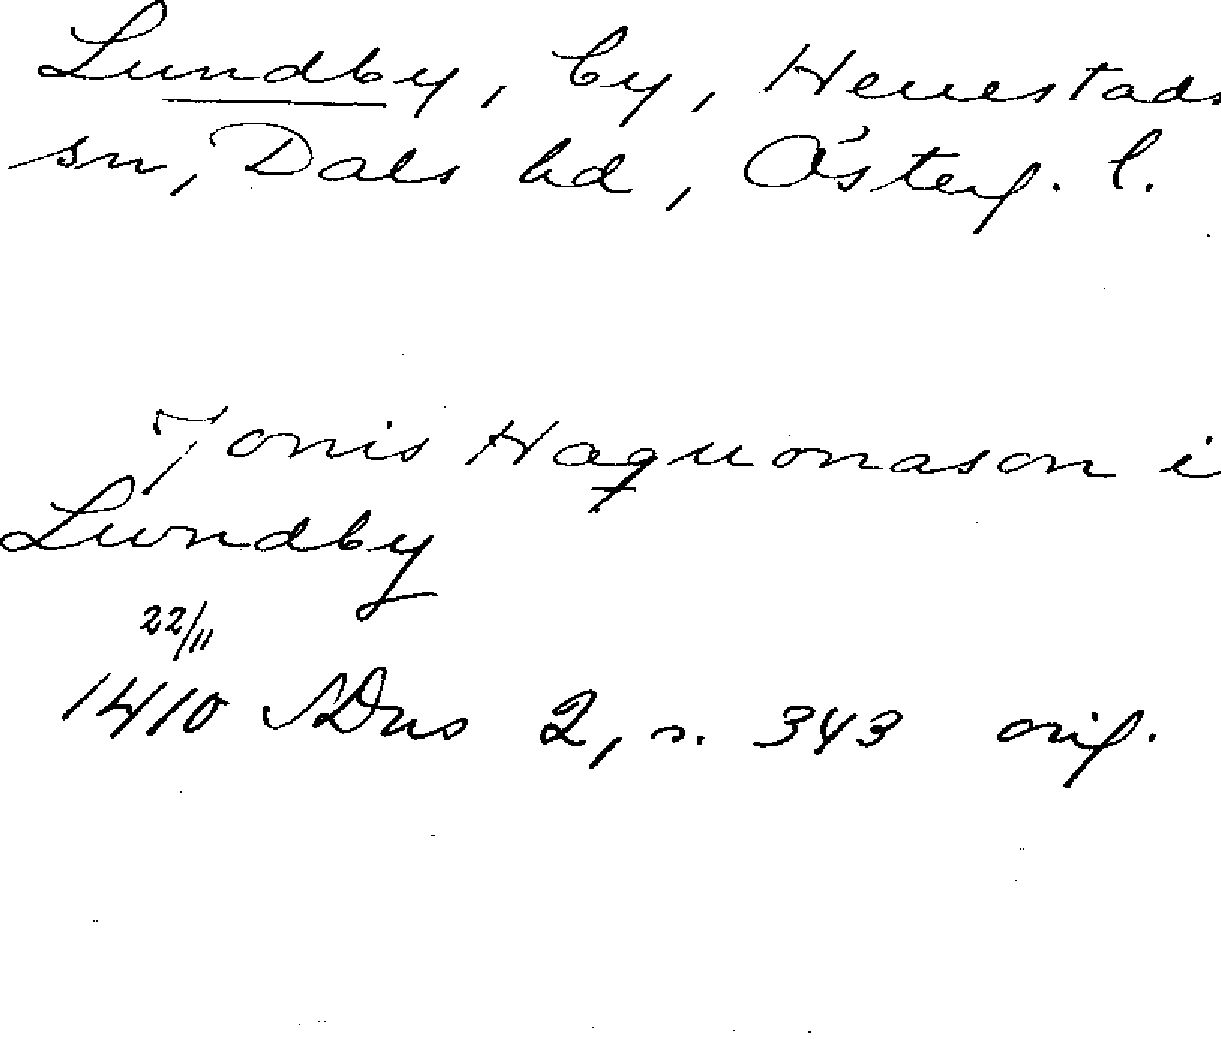 Lundby, by, Herrestads
sn, Dals hd, Österg. l.
Jonis Haquonason i
Lundby
22/11
1410 SDns 2, s. 343 orig.